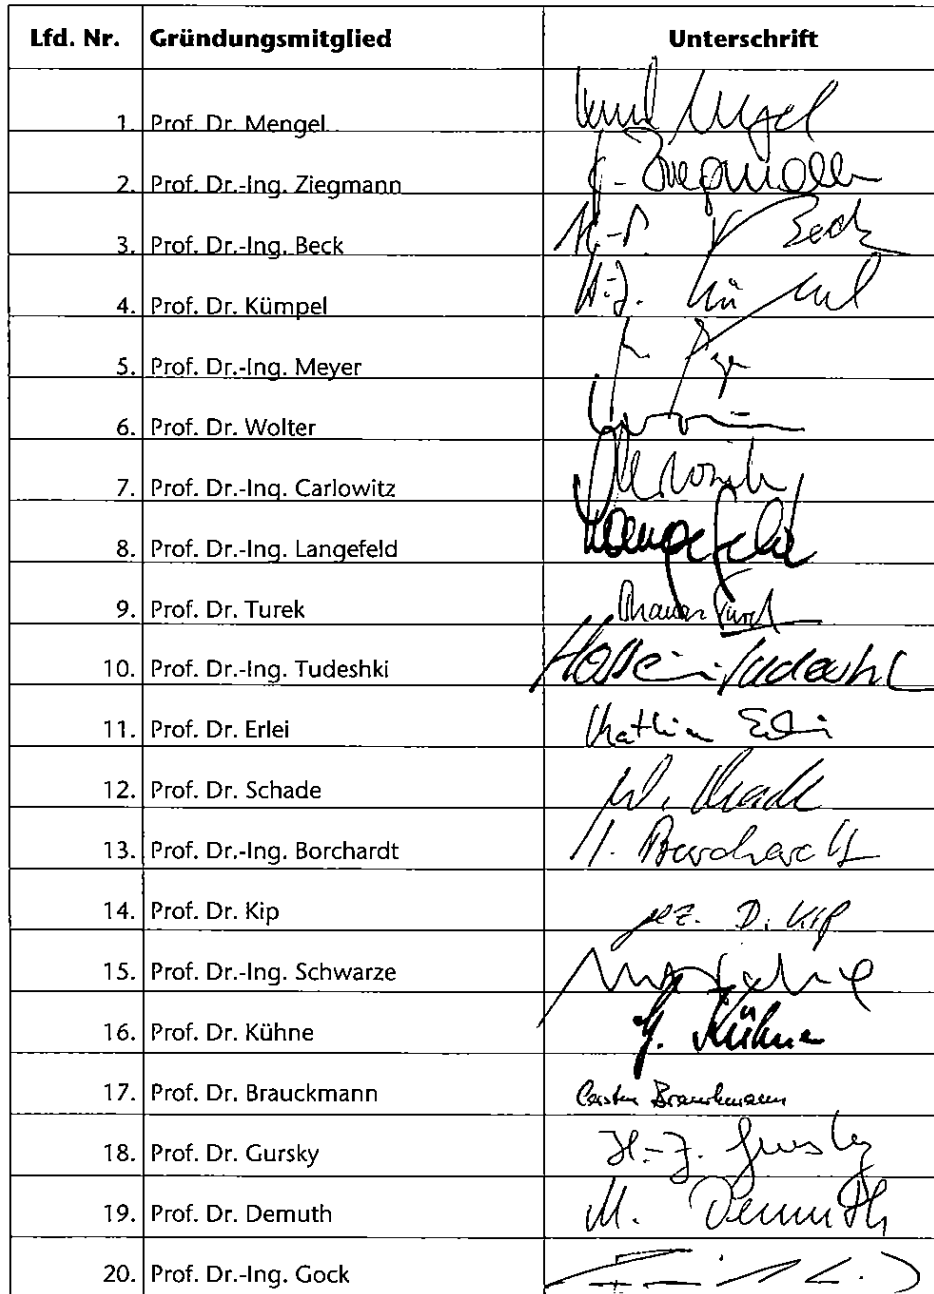 Lfd. Nr. Gründungsmitglied Unterschrift
1. Prof. Dr. Mengel
2. Prof. Dr.-Ing. Ziegmann J. Ziegmann
3. Prof. Dr.-Ing. Beck H.-P. Beck
4. Prof. Dr. Kümpel H.-J.
5. Prof. Dr.-Ing. Meyer
6. Prof. Dr. Wolter
7. Prof. Dr.-Ing. Carlowitz
8. Prof. Dr.-Ing. Langefeld Langefeld
9. Prof. Dr. Turek Turek
10. Prof. Dr.-Ing. Tudeshki Hossein Tudeshki
11. Prof. Dr. Erlei Mathias Erlei
12. Prof. Dr. Schade W. Schade
13. Prof. Dr.-Ing. Borchardt Borchardt
14. Prof. Dr. Kip gez. D. Kip
15. Prof. Dr.-Ing. Schwarze
16. Prof. Dr. Kühne Kühne
17. Prof. Dr. Brauckmann Carsten Brauckmann
18. Prof. Dr. Gursky H.-J. Gursky
19. Prof. Dr. Demuth M. Demuth
20. Prof. Dr.-Ing. Gock